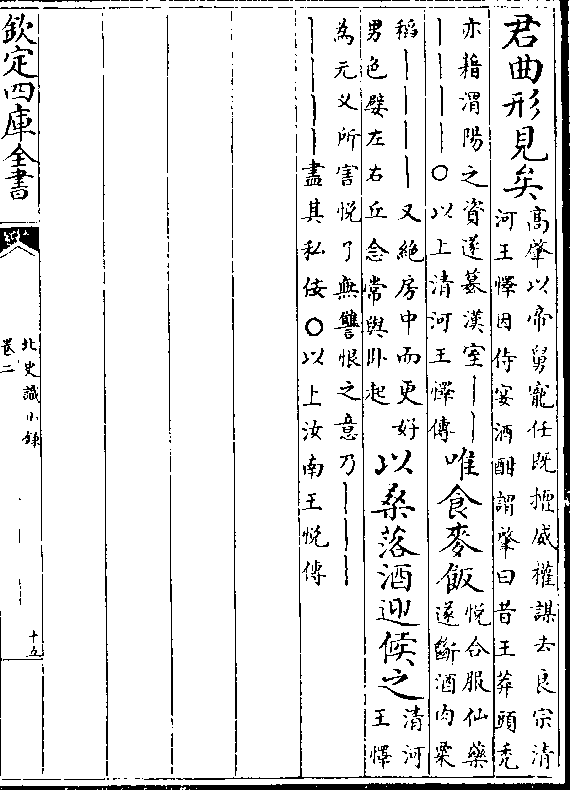 君曲形見矣
高肇以帝舅寵任既擅威權謀去良宗清
河王懌因侍宴酒酣謂肇曰昔王莽頭禿
亦藉渭陽之資遂簒漢室｜｜
｜｜｜｜〇以上清河王懌傳
唯食麥飯
悦合服仙藥
遂斷酒肉粟
稻｜｜｜｜又絶房中而更好
男色嬖左右丘念常與卧起
以桑落酒迎候之
清河
王懌
為元乂所害悦了無讐恨之意乃｜｜｜
｜｜｜｜盡其私佞〇以上汝南王悦傳
欽定四庫全書
北史識小錄
卷二
十五